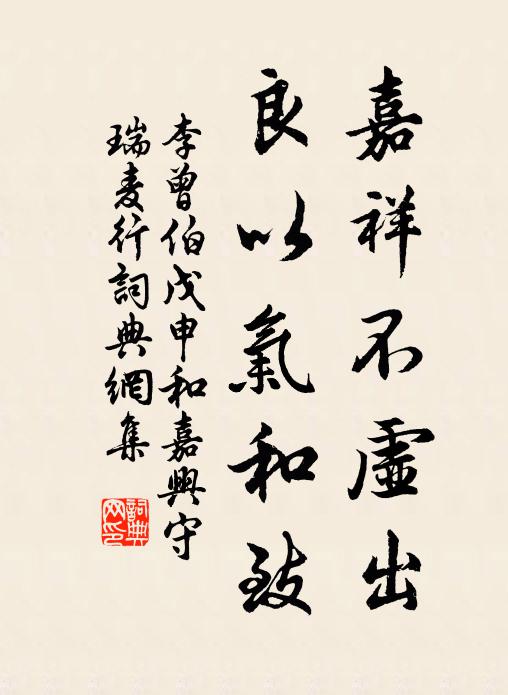 嘉祥不虛出
良以氣和致
李曾伯戊申和嘉興守
瑞麦行詞典網集
詞典網印